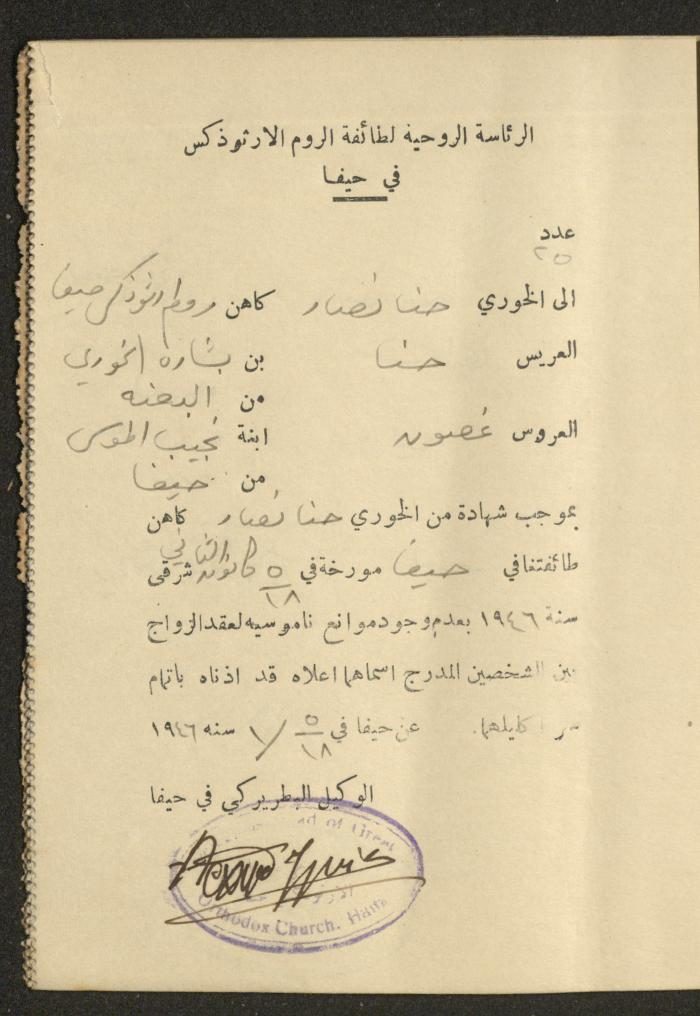 الرئاسة الروحية لطائفة الروم الارثوذكس
في حيفا
عدد
٢٥
الى الخوري حنا نصار كاهن روم ارثوذكس حيفا
العريس حنا بن بشاره الخوري
من البعنه
العروس غصون ابنة نجيب الموسى
من حيفا
بموجب شهادة من الخوري حنا نصار كاهن
طائفتنا في حيفا مورخة في ٥/١٨ كانون الثاني شرقي
سنة ١٩٤٦ بعدم وجود موانع ناموسيه لعقد الزواج
بين الشخصين المدرج اسماهما اعلاه قد اذناه باتمام
سر اكليلهما. عن حيفا في ٥/١٨ /١ سنه ١٩٤٦
الوكيل البطريركي في حيفا
Head of Greek
Orthodox Church. Haifa